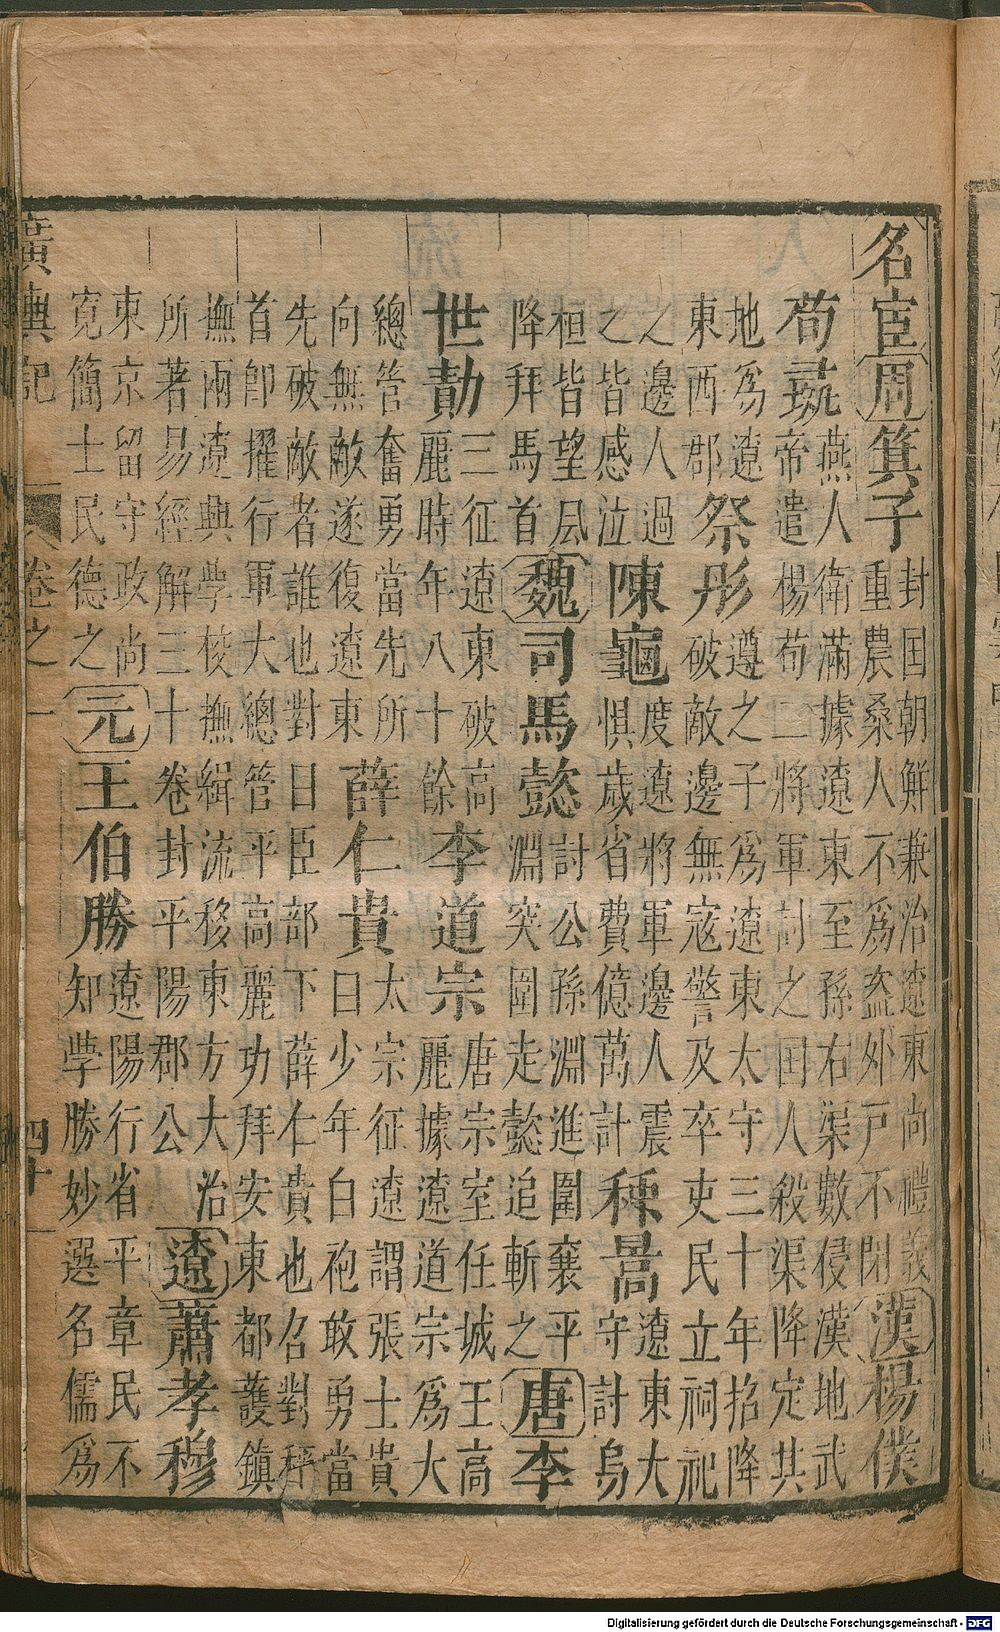 名宦周箕子封囯朝鮮兼治遼東尚禮義重農桑人不爲盗外戸不閉漢楊僕
荀彘燕人衛滿據遼東至孫右渠數侵漢地武帝遣楊荀二將軍討之囯人殺渠降定其
地爲遼東西郡祭彤遵之子爲遼東太守三十年招降破敵邊無寇警及卒吏民立祠祀
之邊人過之皆感泣陳龜度遼將軍邊人震惧歳省費億萬計种暠遼東大守討烏
桓皆望風降拜馬首魏司馬懿討公孫淵進圍襄平淵突圍走懿追斬之唐李
世勣三征遼東破高麗時年八十餘李道宗唐宗室任城王高麗據遼道宗爲大
總管奮勇當先所向無敵遂復遼東薛仁貴太宗征遼謂張士貴曰少年白袍敢勇當
先破敵者誰也對曰臣部下薛仁貴也召對稱首卽擢行軍大總管平高麗功拜安東都護鎮
撫兩遼興學校撫緝流移東方大治所著易經解三十卷封平陽郡公遼蕭孝穆
東京留守政尚寛簡士民德之元王伯勝遼陽行省平章民不知學勝妙選名儒爲
廣輿記 卷之一 四十
Digitalisierung gefördert durch die Deutsche Forschungsgemeinschaft - DFG